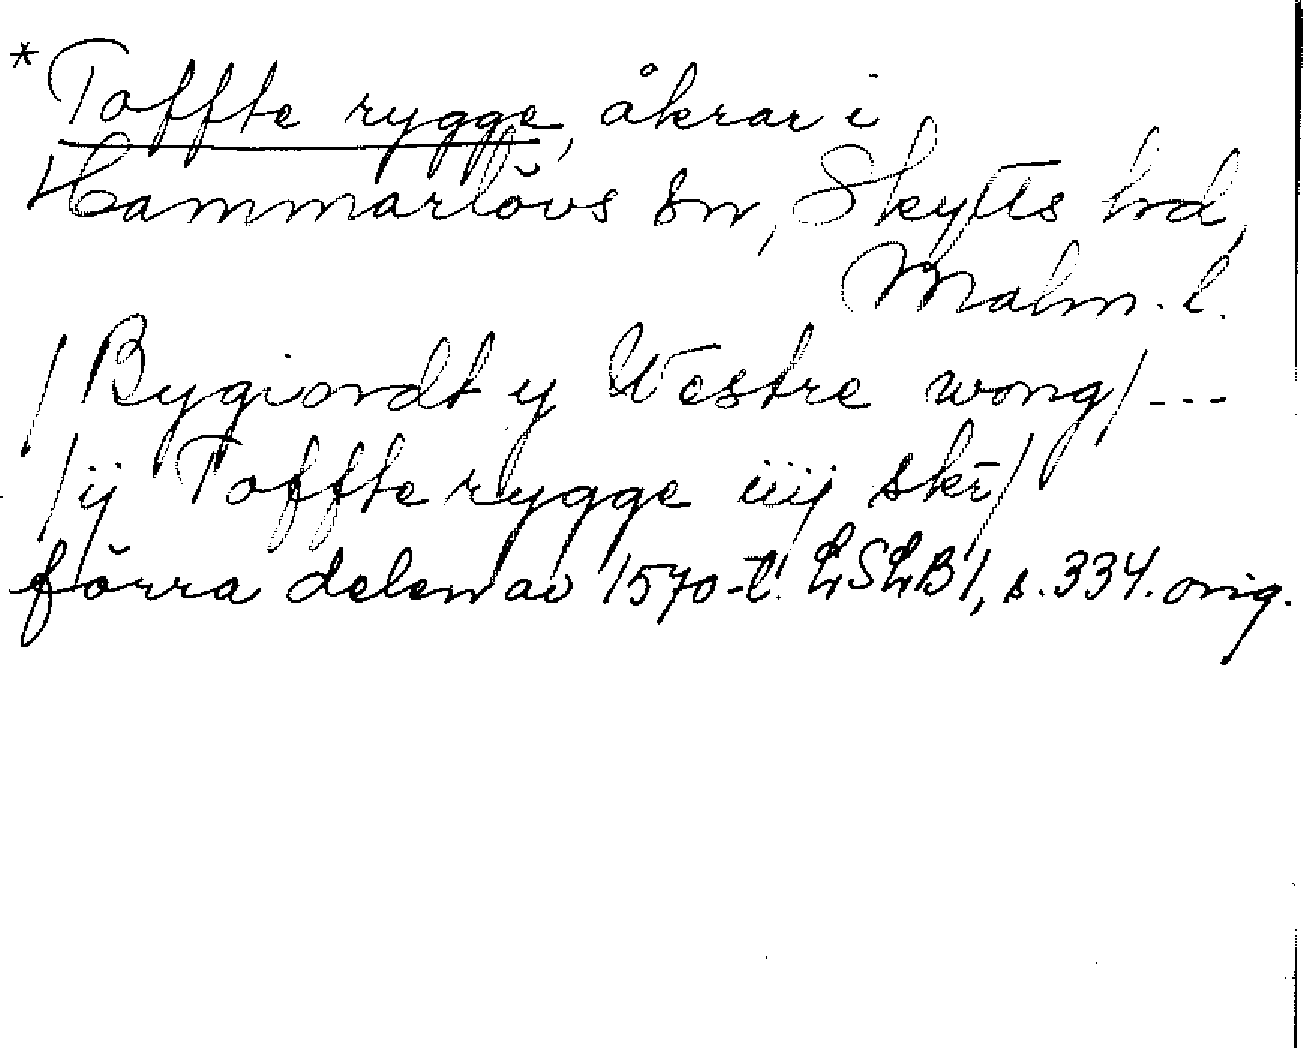 *Toffte rygge, åkrar i
Hammarlövs sn, Skytts hd,
Malm. l.
/Bygiordt y Westre wong/---
/ij Toffte rygge iiij skr̄/
förra delen av 1570-t. LSLB I, s. 334. orig.